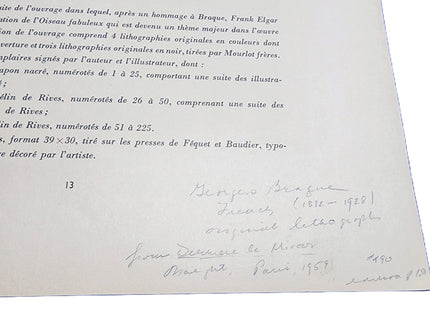 ite de l'ouvrage dans lequel, après un hommage à Braque, Frank Elgar
tation de l'Oiseau fabuleux qui est devenu un thème majeur dans l'œuvre
tion de l'ouvrage comprend 4 lithographies originales en couleurs dont
verture et trois lithographies originales en noir, tirées par Mourlot frères.
plaires signés par l'auteur et l'illustrateur, dont :
apon nacré, numérotés de 1 à 25, comportant une suite des illustra-
s;
élin de Rives, numérotés de 26 à 50, comprenant une suite des
de Rives;
lin de Rives, numérotés de 51 à 225.
s, format 39×30, tiré sur les presses de Féquet et Baudier, typo-
e décoré par l'artiste.
13
Georges Braque
French (1882-1928)
original lithograph
from Derriere le Miroir
Maeght, Paris, 1959